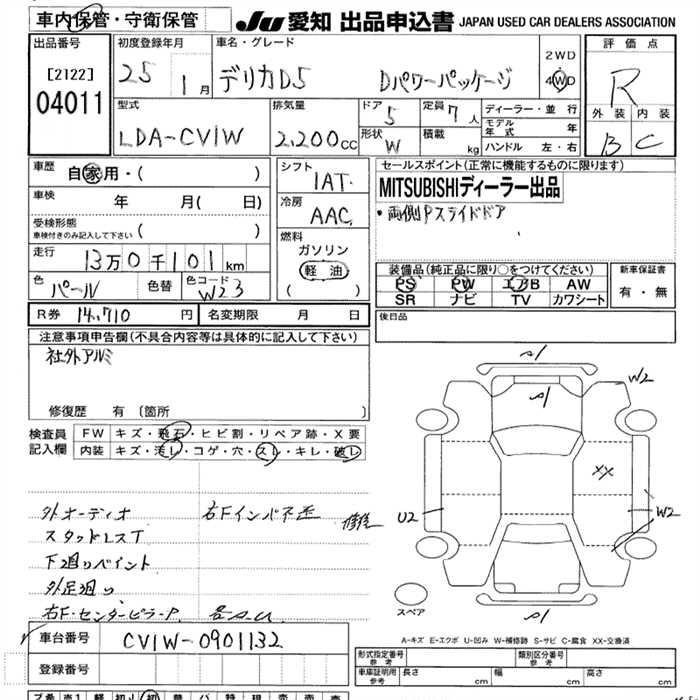 車内保管・守衛保管
JU 愛知 出品申込書 JAPAN USED CAR DEALERS ASSOCIATION
出品番号 [2122] 04011
初度登録年月 25 1月
車名・グレード デリカD5 Dパワーパッケージ
2WD 4WD
評価点 R
型式 LDA-CV1W
排気量 2,200cc
ドア 5
定員 7人
形状 W
積載 kg
ディーラー・並行
モデル年式 年
ハンドル 左・右
外装 B
内装 C
車歴 自家用・( )
シフト 1AT
セールスポイント(正常に機能するものに限ります)
車検 年 月( 日)
冷房 AAC
MITSUBISHIディーラー出品
・両側Pスライドドア
受検形態 車検付きのみ記入して下さい ( )
燃料 ガソリン 軽油 ( )
走行 13万0千101km
色 パール 色替 色コード W23
装備品(純正品に限り○をつけてください)
PS PW エアB AW
SR ナビ TV カワシート
新車保証書 有・無
R券 14,710円 名変期限 月 日
後日品
注意事項申告欄(不具合内容等は具体的に記入して下さい)
社外アルミ
修復歴 有〔箇所 〕
検査員記入欄
FW キズ・飛石・ヒビ割・リペア跡・X要
内装 キズ・汚レ・コゲ・穴・スレ・キレ・破レ
外オーディオ 右Fインパネ歪 修復
スタッドレスT
下廻りペイント
外足廻り
右F・センターピラーP.
A1
A1
W2
XX
U2
W2
A1
スペア
A-キズ E-エクボ U-凹み W-補修跡 S-サビ C-腐食 XX-交換済
車台番号 CV1W-0901132
登録番号
形式指定番号 参考
類別区分番号 参考
車庫証明用 参考 長さ cm 幅 cm 高さ cm